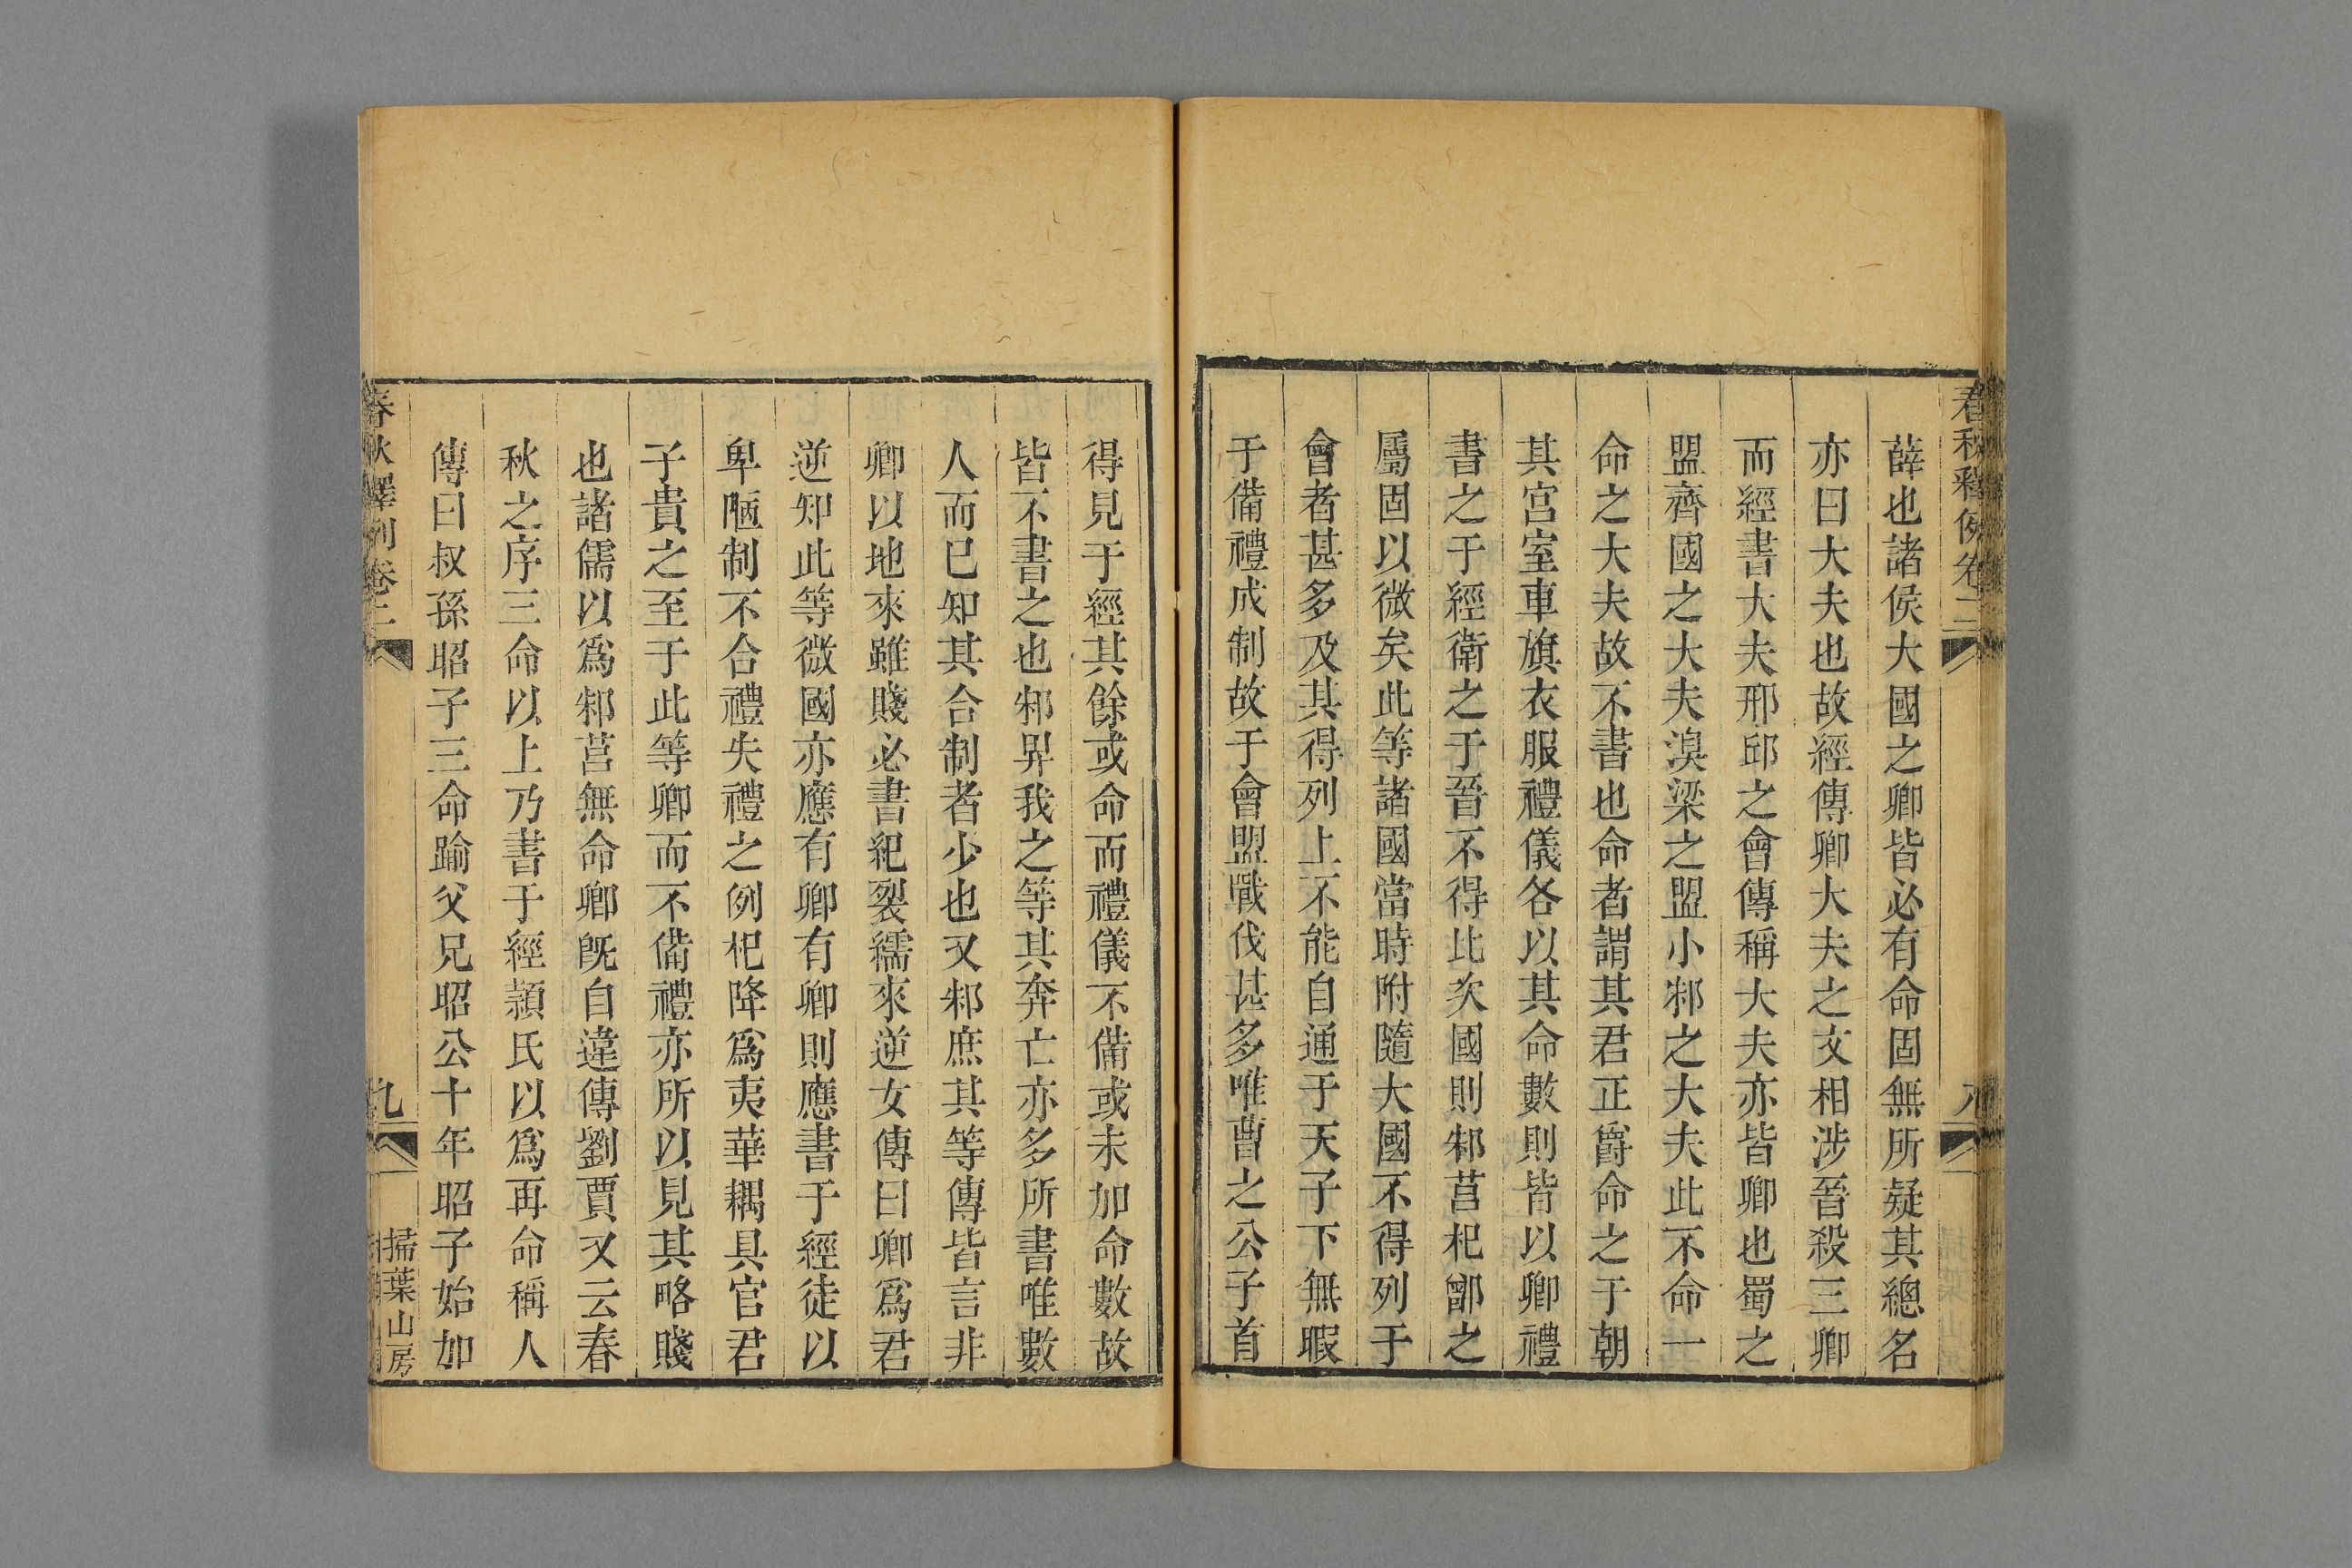 春秋釋例卷二
八
薛也諸侯大國之卿皆必有命固無所疑其總名
亦曰大夫也故經傳卿大夫之文相涉晉殺三卿
而經書大夫邢邱之會傳稱大夫亦皆卿也蜀之
盟齊國之大夫溴梁之盟小邾之大夫此不命一
命之大夫故不書也命者謂其君正爵命之于朝
其宮室車旗衣服禮儀各以其命數則皆以卿禮
書之于經衛之于晉不得比次國則邾莒杞鄫之
屬固以微矣此等諸國當時附隨大國不得列于
會者甚多及其得列上不能自通于天子下無暇
于備禮成制故于會盟戰伐甚多唯曹之公子首
得見于經其餘或命而禮儀不備或未加命數故
皆不書之也邾畀我之等其奔亡亦多所書唯數
人而已知其合制者少也又邾庶其等傳皆言非
卿以地來雖賤必書紀裂繻來逆女傳曰卿爲君
逆知此等微國亦應有卿有卿則應書于經徒以
卑陋制不合禮失禮之例杞降爲夷華耦具官君
子貴之至于此等卿而不備禮亦所以見其略賤
也諸儒以爲邾莒無命卿旣自違傳劉賈又云春
秋之序三命以上乃書于經潁氏以爲再命稱人
傳曰叔孫昭子三命踰父兄昭公十年昭子始加
春秋釋例卷二
九
掃葉山房